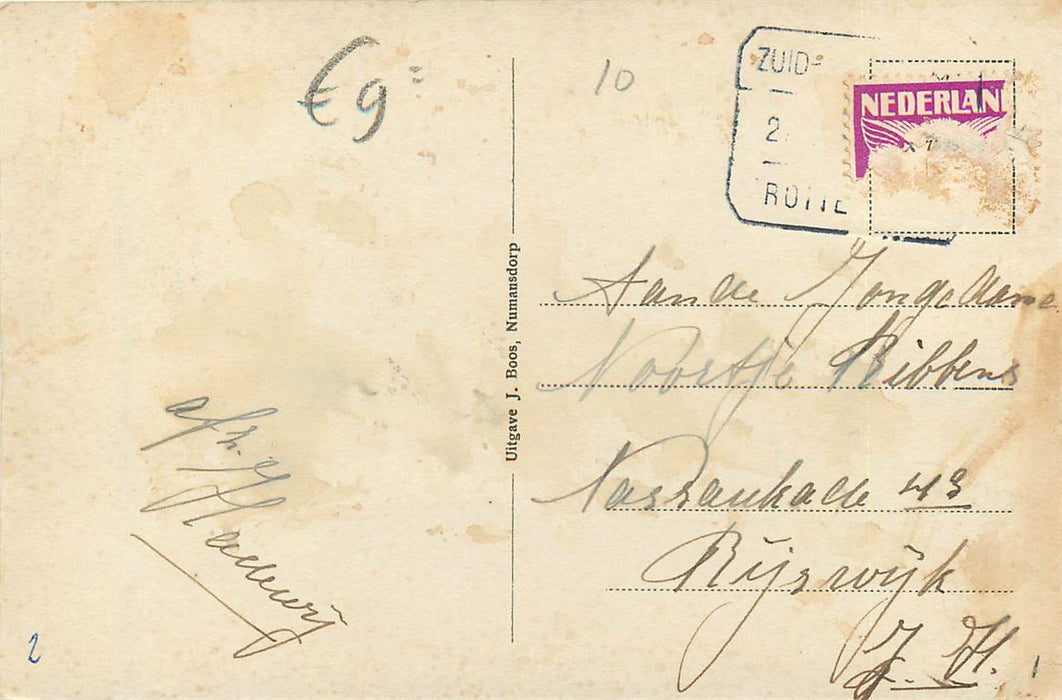 €9=
10
ZUID-
2.
ROTTE
NEDERLAN
Uitgave J. Boos, Numansdorp
Aan de Jongedame
Noortje Ribbens
Nassaukade 43
Rijswijk
Z. H.
afz.
2
1